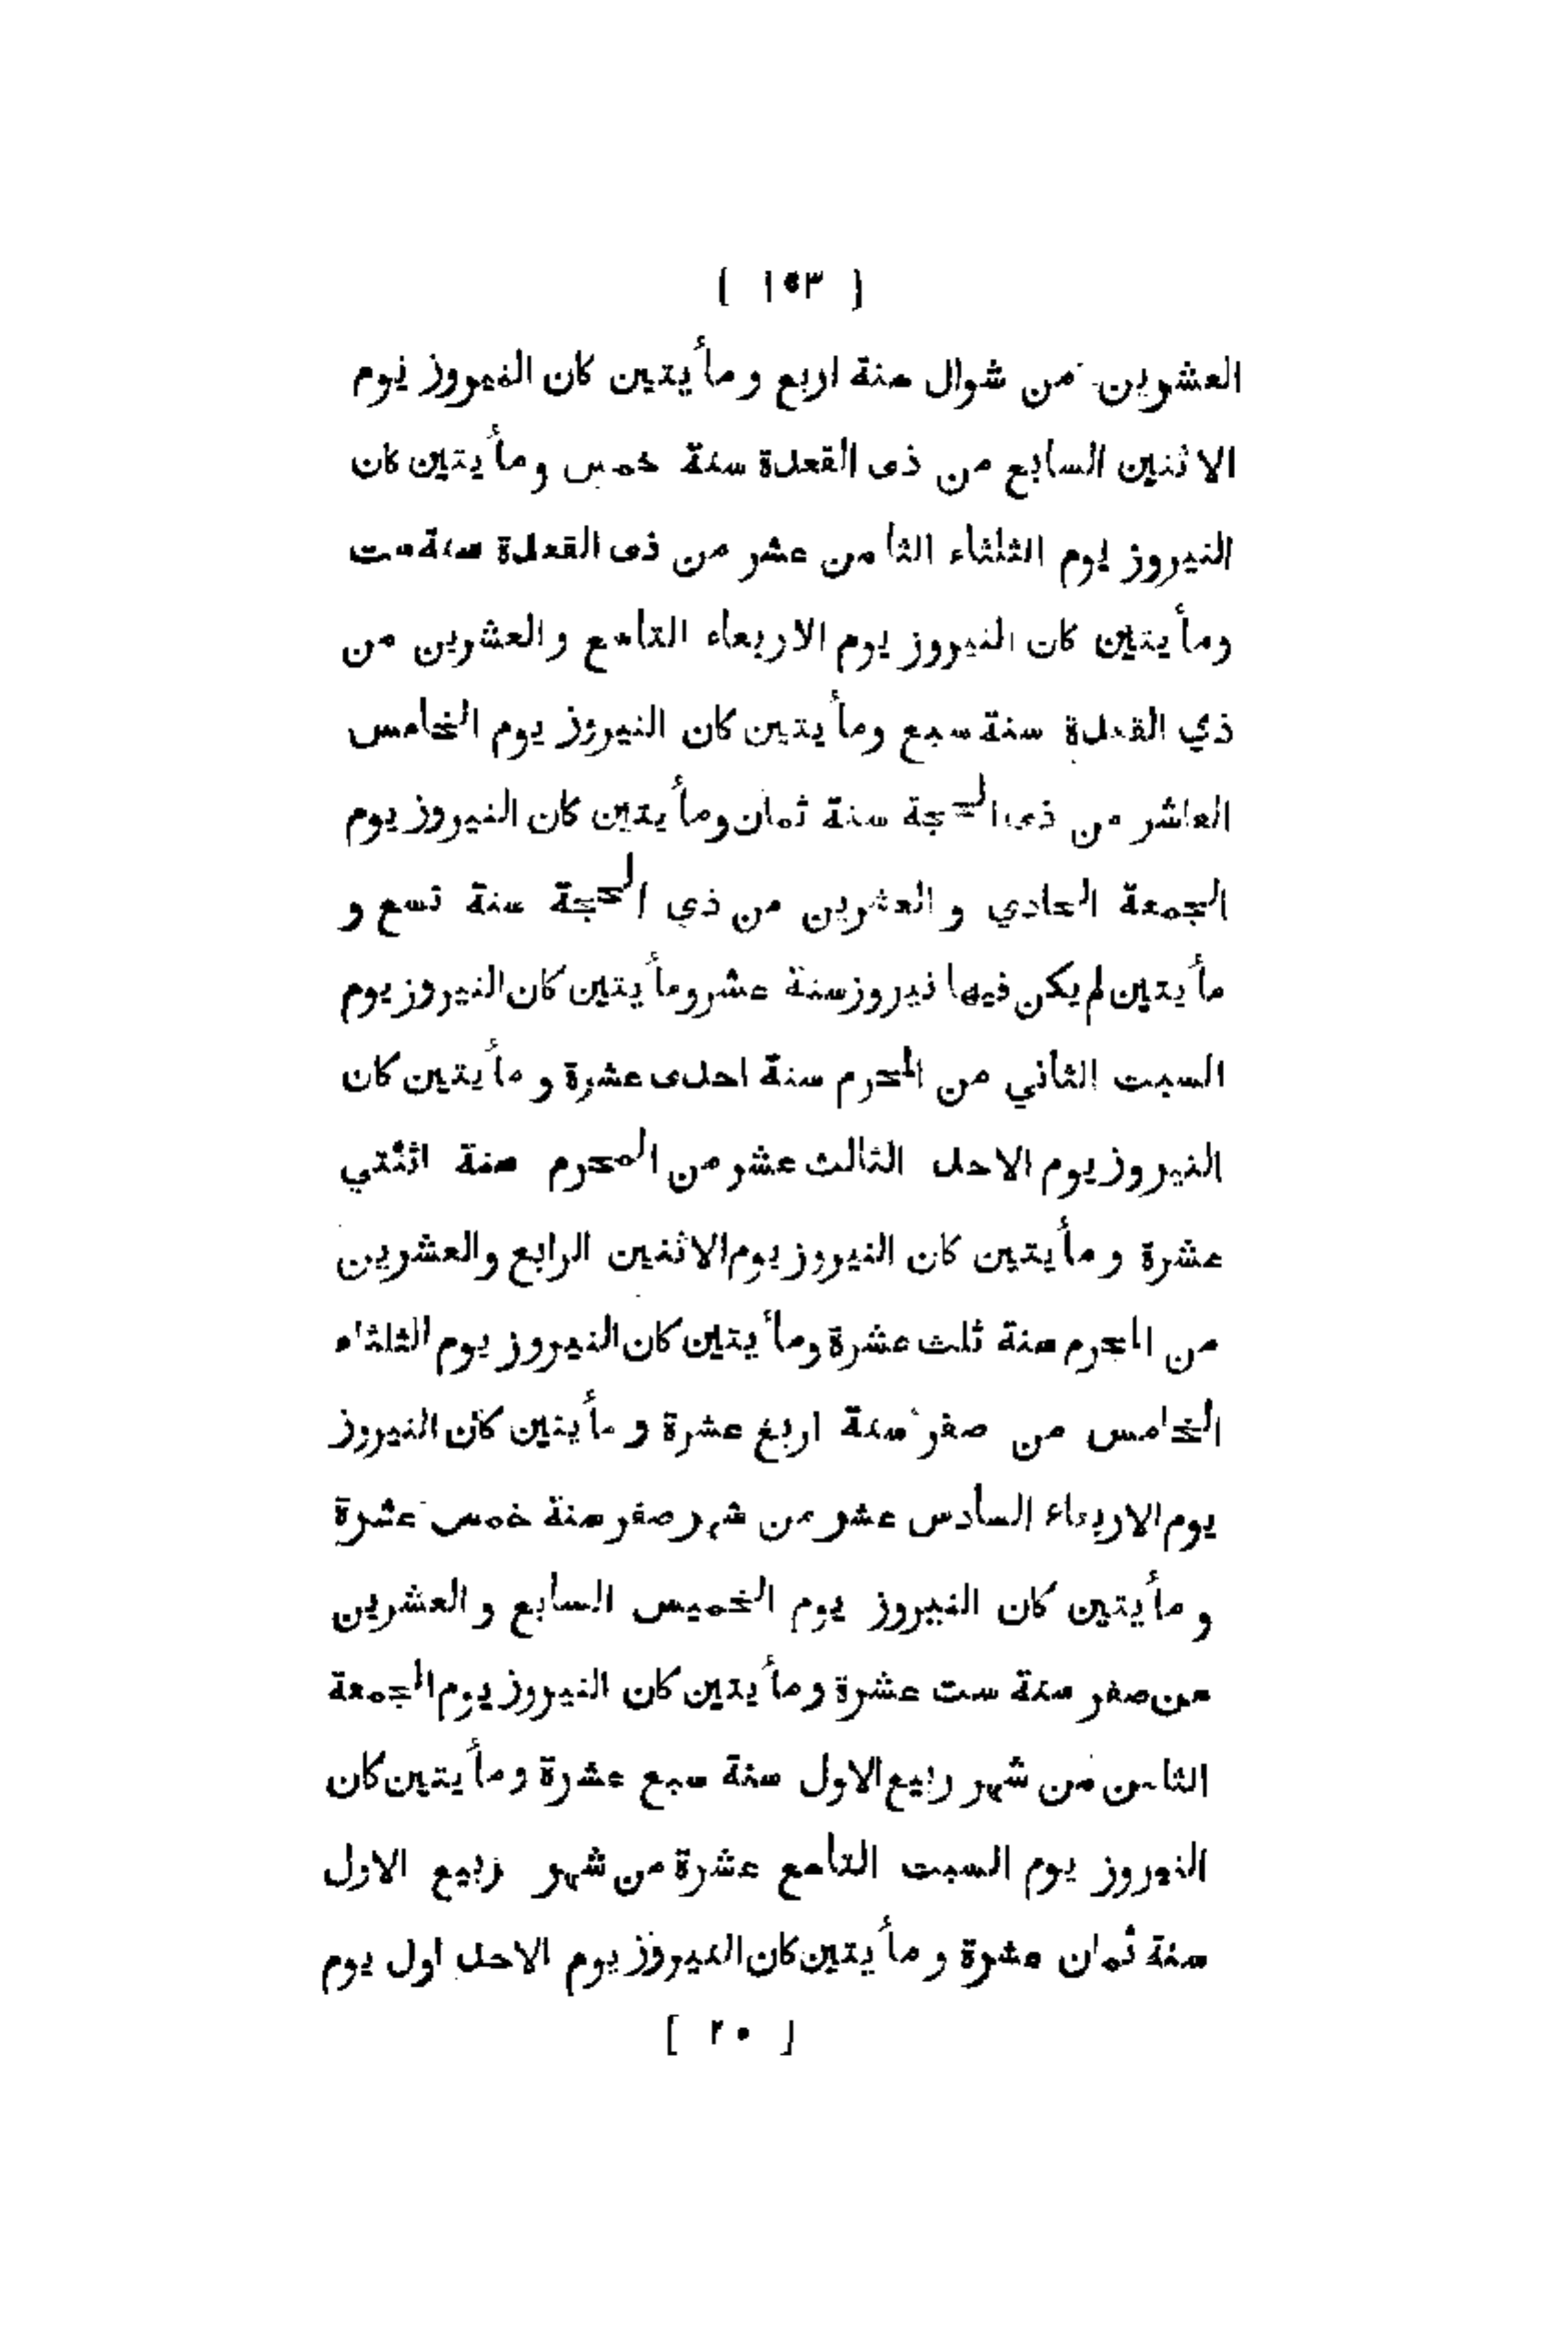 ( ١٥٣ )
العشرين من شوال سنة اربع و مأيتين كان النيروز يوم
الاثنين السابع من ذى القعدة سنة خمس و مأيتين كان
النيروز يوم الثلثاء الثامن عشر من ذى القعدة سنة ست
ومأيتين كان النيروز يوم الاربعاء التاسع والعشرين من
ذي القعدة سنة سبع ومأيتين كان النيروز يوم الخامس
العاشر من ذى الحجة سنة ثمان ومأيتين كان النيروز يوم
الجمعة الحادي و العشرين من ذي الحجة سنة تسع و
مأيتين لم يكن فيها نيروز سنة عشر ومأيتين كان النيروز يوم
السبت الثاني من المحرم سنة احدى عشرة و مأيتين كان
النيروز يوم الاحد الثالث عشر من المحرم سنة اثنتي
عشرة و مأيتين كان النيروز يوم الاثنين الرابع والعشرين
من المحرم سنة ثلث عشرة ومأيتين كان النيروز يوم الثلثاء
الخامس من صفر سنة اربع عشرة و مأيتين كان النيروز
يوم الاربعاء السادس عشر من شهر صفر سنة خمس عشرة
و مأيتين كان النيروز يوم الخميس السابع و العشرين
من صفر سنة ست عشرة و مأيتين كان النيروز يوم الجمعة
الثامن من شهر ربيع الاول سنة سبع عشرة و مأيتين كان
النيروز يوم السبت التاسع عشرة من شهر ربيع الاول
سنة ثمان عشرة و مأيتين كان النيروز يوم الاحد اول يوم
[ ٢٠ ]